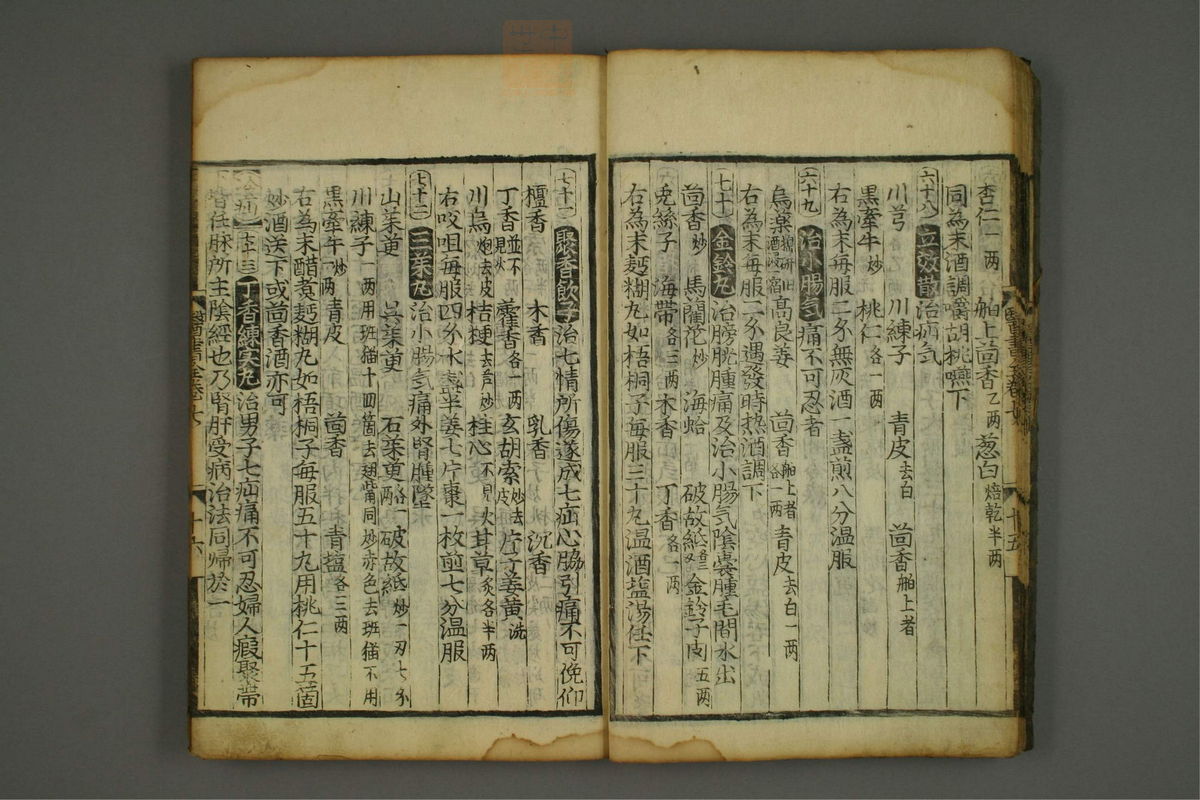 杏仁一两 舶上茴香乙两 葱白焙乾半两
同為末酒調嚼胡桃嚥下
六十八 立效散 治疝气
川芎 川練子 青皮去白 茴香舶上者
黒牽牛炒 桃仁各一两
右為末每服二分無灰酒一盞煎八分温服
六十九 治小腸气痛不可忍者
烏薬 酒浸一宿 高良姜 茴香舶上者各一两 青皮去白一两
右為末每服二分遇發時热酒調下
七十 金鈴丸 治膀胱腫痛及治小腸气陰囊腫毛間水出
茴香炒 馬藺花炒 海蛤 破故紙 金鈴子皮五两
兎絲子 海帶各三两 木香 丁香各一两
右為末麪糊丸如梧桐子每服三十丸温酒塩湯任下
七十一 聚香飲子 治七情所傷遂成七疝心脇引痛不可俛仰
檀香 木香 乳香 沉香
丁香並不見火 藿香各一两 玄胡索炒去皮 片子姜黄洗
川烏炮去皮 桔梗去芦炒 桂心不見火 甘草炙各半两
右㕮咀每服四分水一盞半姜七片棗一枚煎七分温服
七十二 三茱丸 治小腸气痛外腎腫墜
山茱萸 吳茱萸 石茱萸各一两 破故紙炒一两七分
川練子一两用班猫十四箇去翅觜同炒赤色去班猫不用
黒牽牛炒一两 青皮 茴香 青塩各三两
右為末醋煮麪糊丸如梧桐子每服五十丸用桃仁十五箇
妙酒送下或茴香酒亦可
七十三 丁香練实丸 治男子七疝痛不可忍婦人瘕聚带
皆任脉所主陰經也乃腎肝受病治法同歸於一
十五
十六